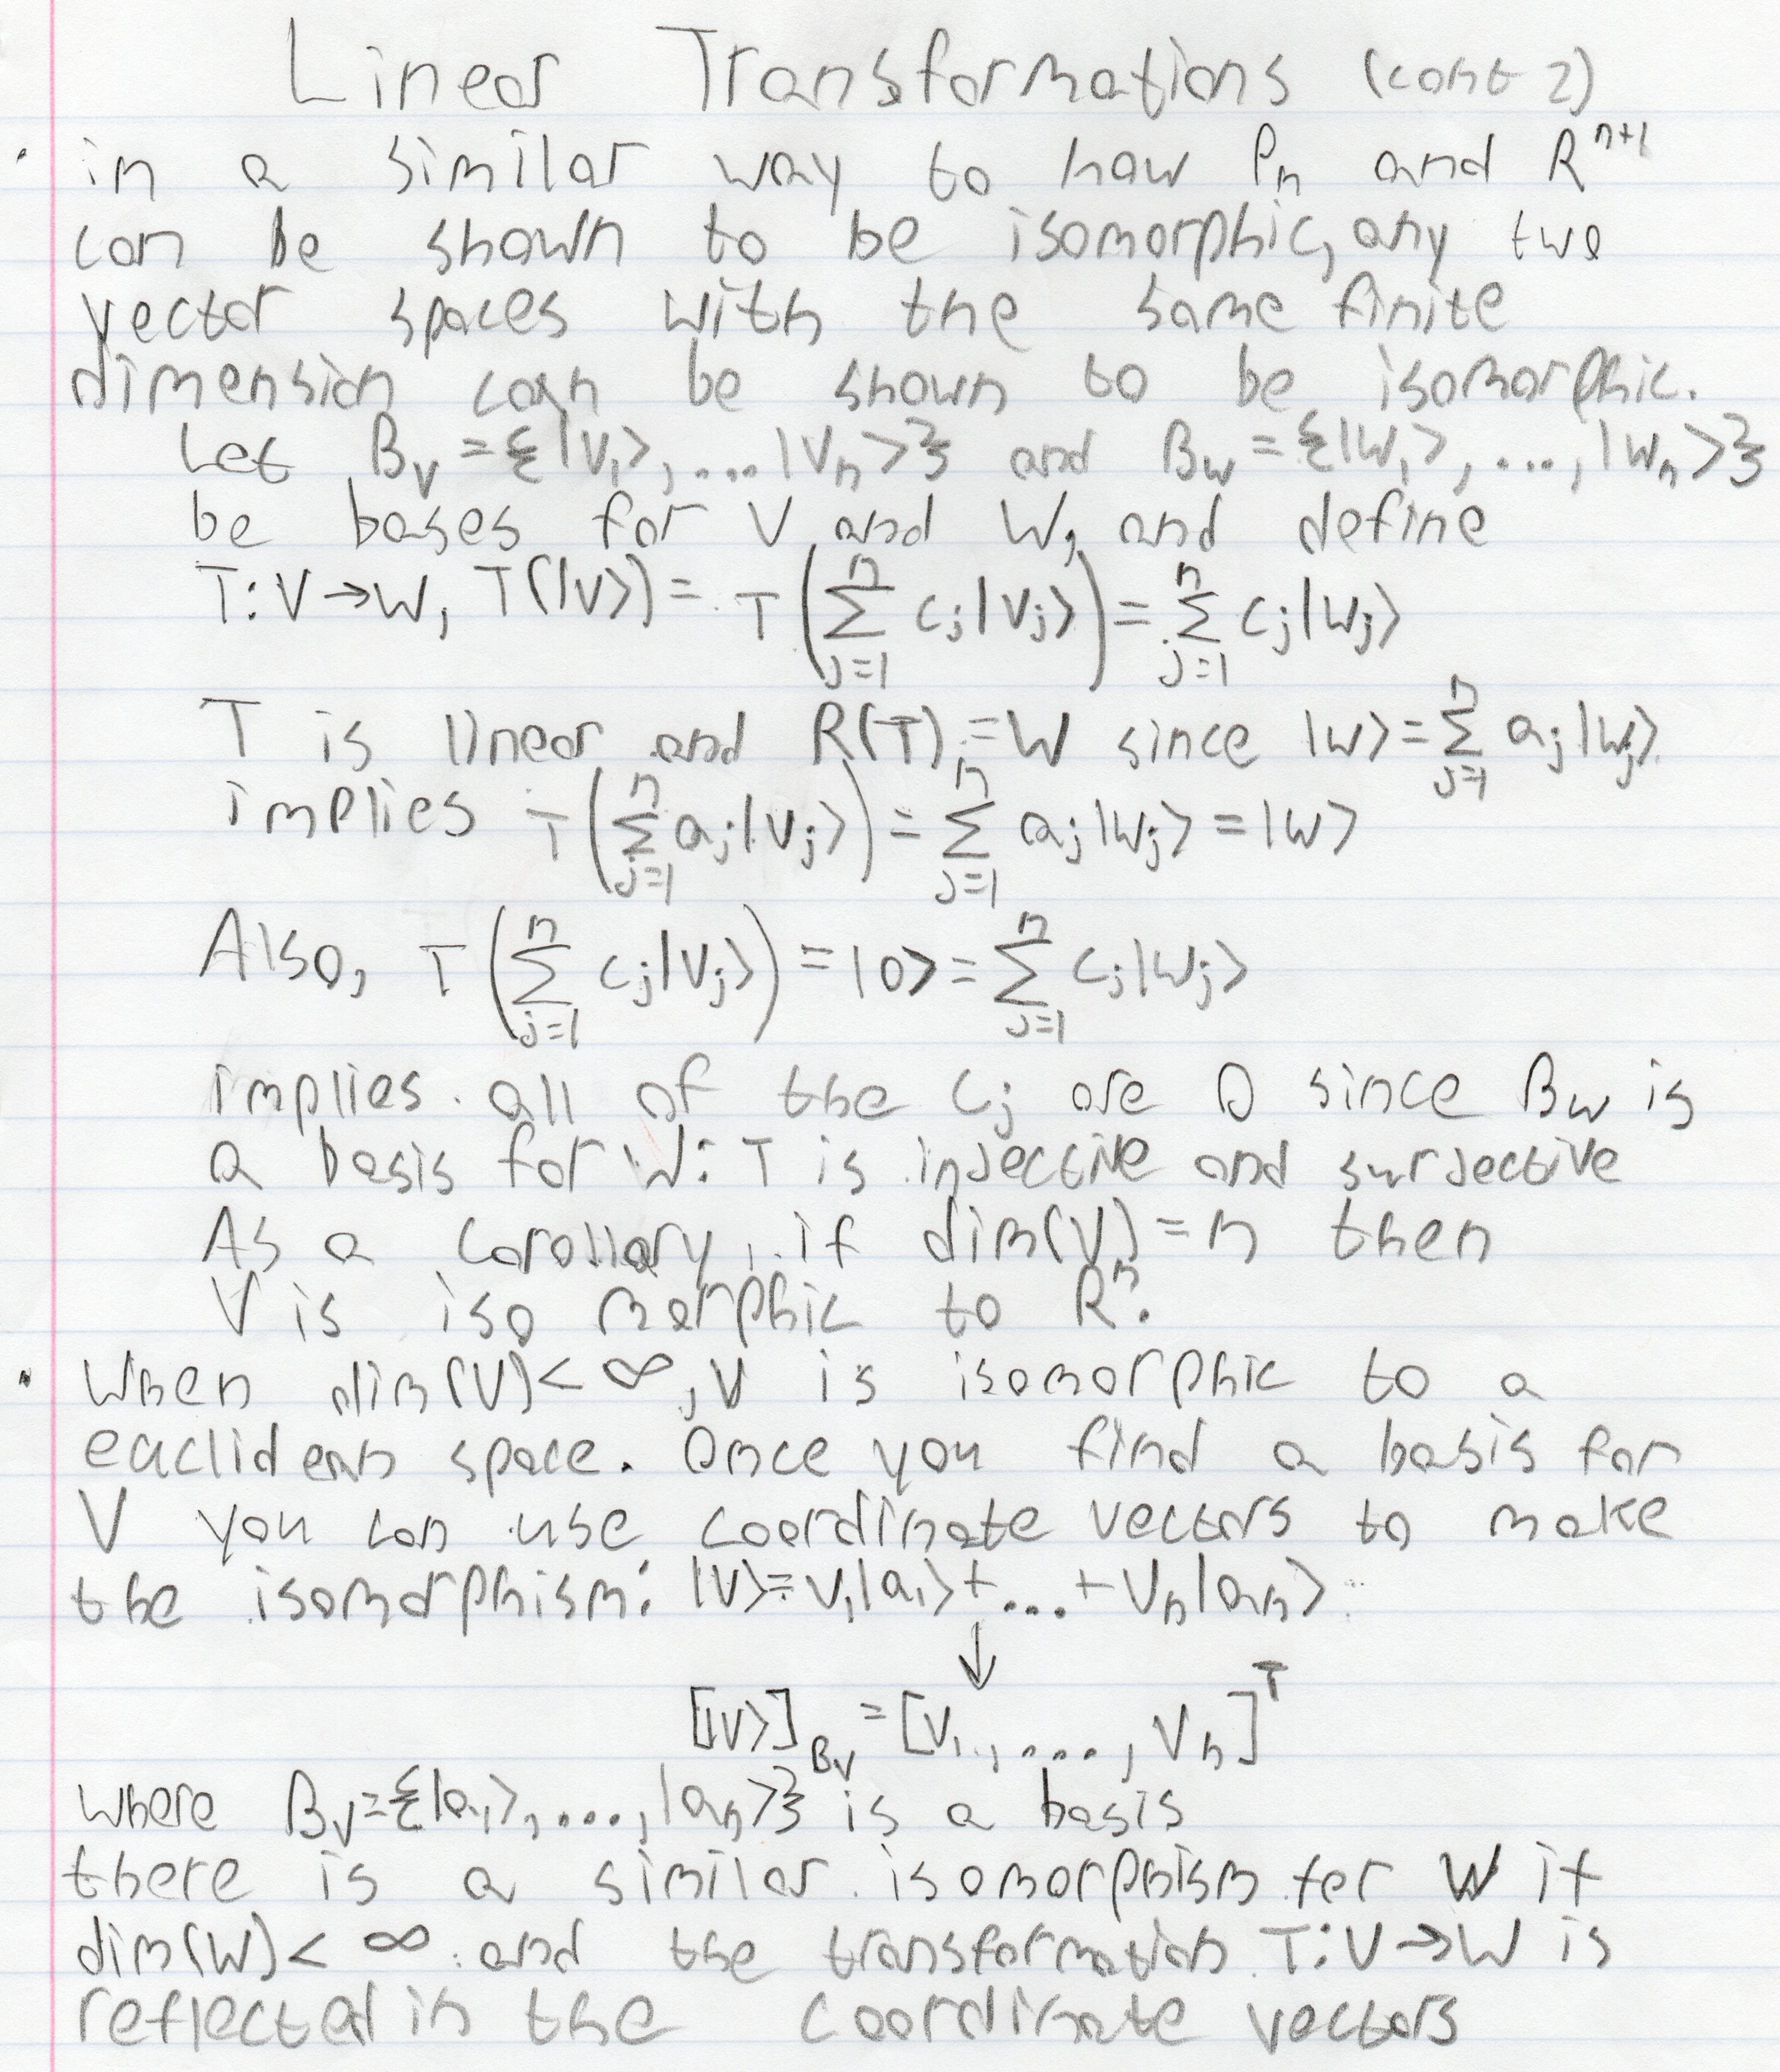 Linear Transformations (cont 2)
· in a similar way to how Pₙ and Rⁿ⁺¹
can be shown to be isomorphic, any two
vector spaces with the same finite
dimension can be shown to be isomorphic.
Let B_V = {|V₁>, ... |Vₙ>} and B_W = {|W₁>, ..., |Wₙ>}
be bases for V and W, and define
T: V → W, T(|V>) = T(∑_{j=1}^{n} cⱼ|Vⱼ>) = ∑_{j=1}^{n} cⱼ|Wⱼ>
T is linear and R(T) = W since |W> = ∑_{j=1}^{n} aⱼ|Wⱼ>
implies T(∑_{j=1}^{n} aⱼ|Vⱼ>) = ∑_{j=1}^{n} aⱼ|Wⱼ> = |W>
Also, T(∑_{j=1}^{n} cⱼ|Vⱼ>) = |0> = ∑_{j=1}^{n} cⱼ|Wⱼ>
implies all of the cⱼ are 0 since B_W is
a basis for W: T is injective and surjective
As a corollary, if dim(V) = n then
V is isomorphic to Rⁿ.
· When dim(V) < ∞, V is isomorphic to a
euclidean space. Once you find a basis for
V you can use coordinate vectors to make
the isomorphism: |V> = V₁|a₁> + ... + Vₙ|aₙ>
↓
[|V>]_{B_V} = [V₁, ..., Vₙ]ᵀ
where B_V = {|a₁>, ..., |aₙ>} is a basis
there is a similar isomorphism for W if
dim(W) < ∞ and the transformation T: V → W is
reflected in the coordinate vectors